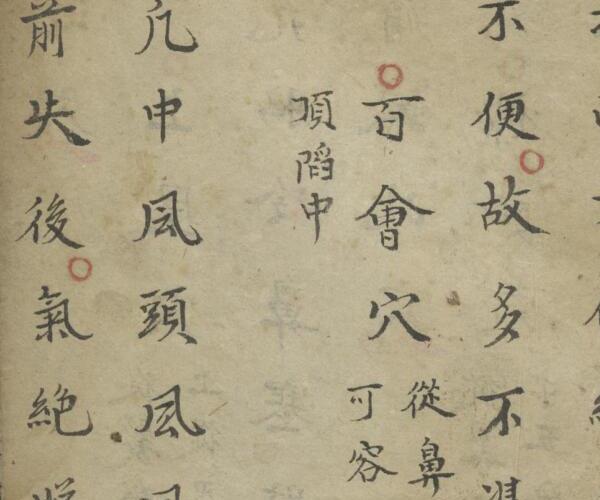 不便故多不
百會穴
從鼻
可容
項䧟中
凢中風頭風
前失後氣絕